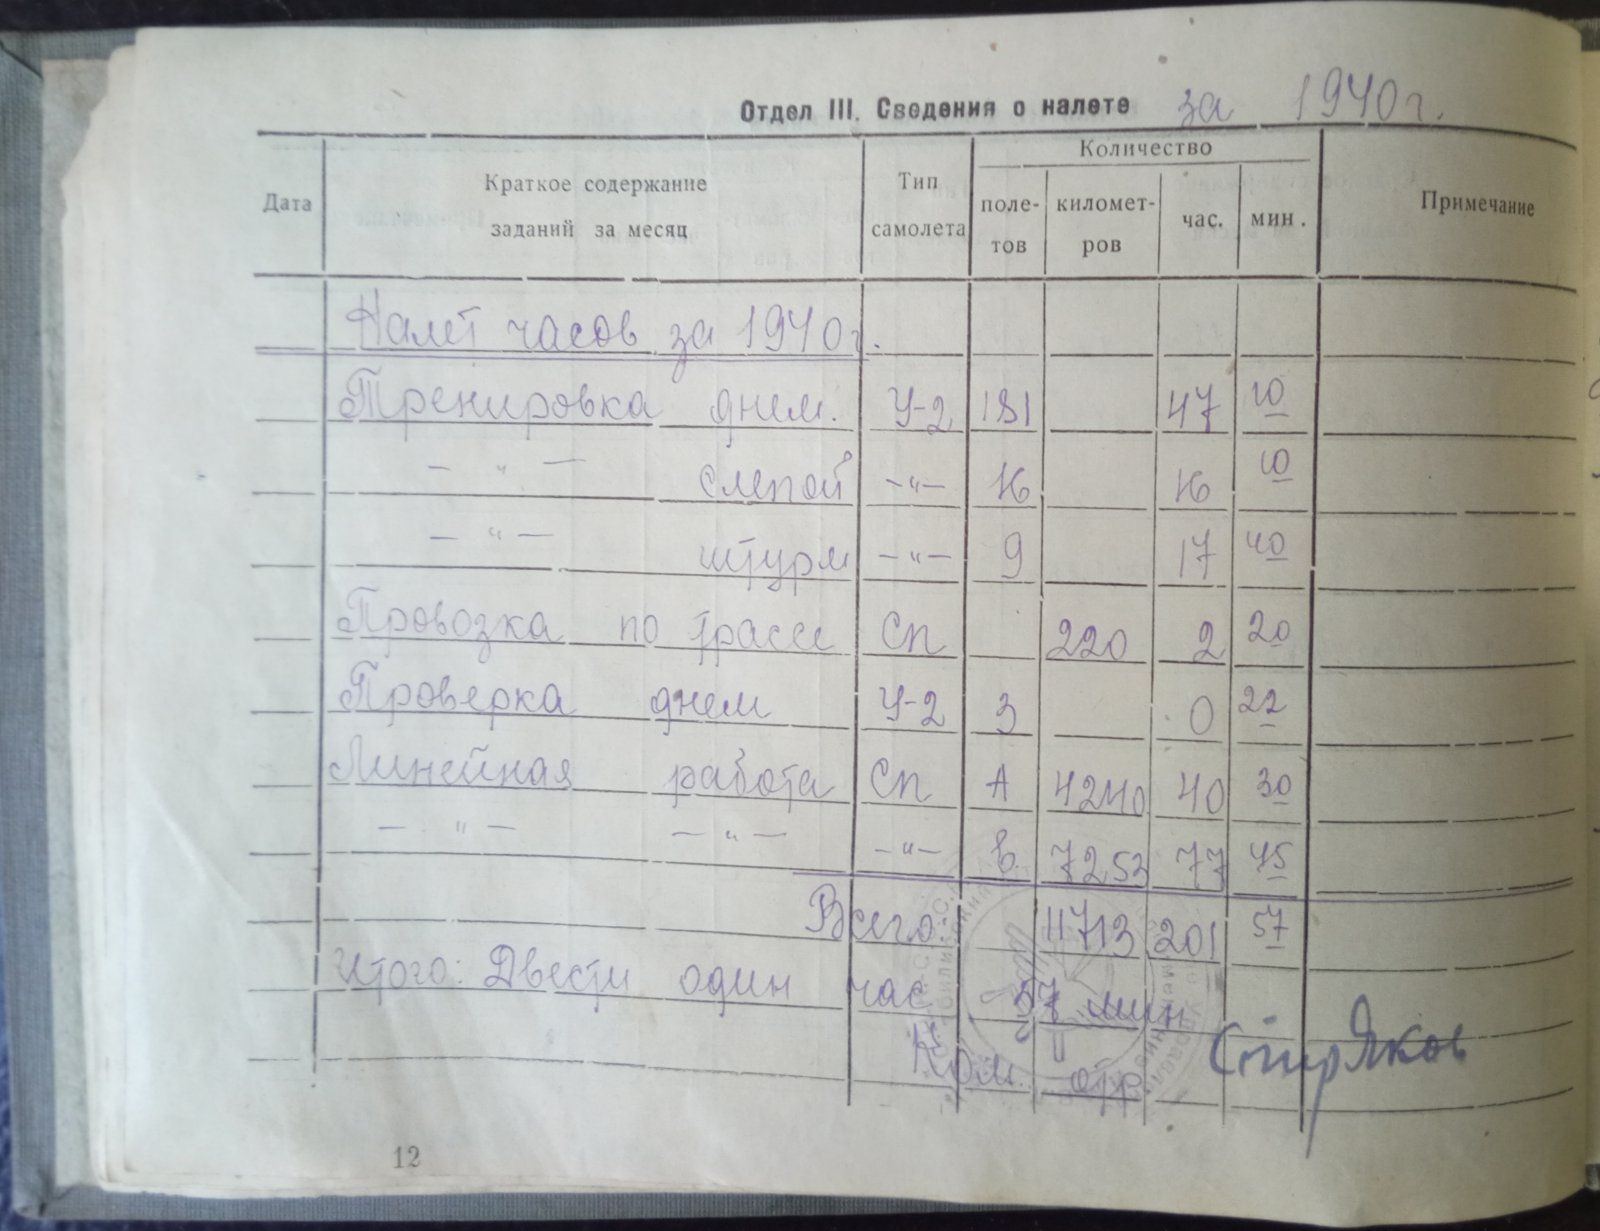 Отдел III. Сведения о налете за 1940г.
Количество
Дата Краткое содержание заданий за месяц Тип самолета поле-тов километ-ров час. мин. Примечание
Налет часов за 1940г.
Тренировка днем. У-2 181 47 10
— " — слепой — " — 16 16 10
— " — штурм — " — 9 17 40
Провозка по трассе СП 220 2 20
Проверка днем У-2 3 0 22
Линейная работа СП А 4240 40 30
— " — — " — — " — Б 7253 77 45
Всего: 11713 201 57
Итого: Двести один час 57 мин
Ком. отр
12